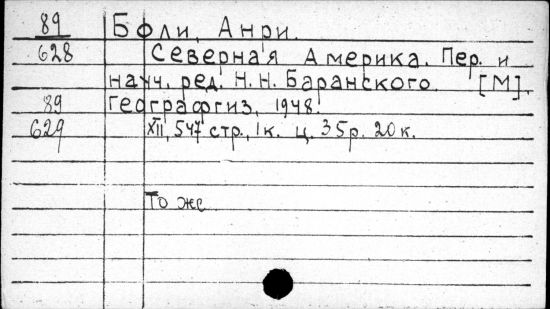 89 Боли, Анри.
628 Северная Америка. Пер. и
науч. ред. Н.Н. Баранского. [М].
89 Географгиз, 1948.
629 XII, 547 стр., 1к. ц. 35р. 20к.
То же